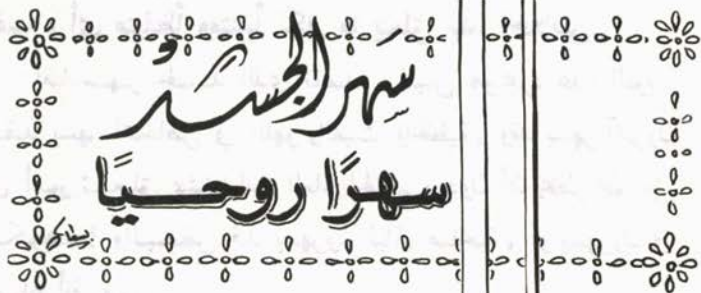 سَهر الجسَدُ
سهرًا روحيًا